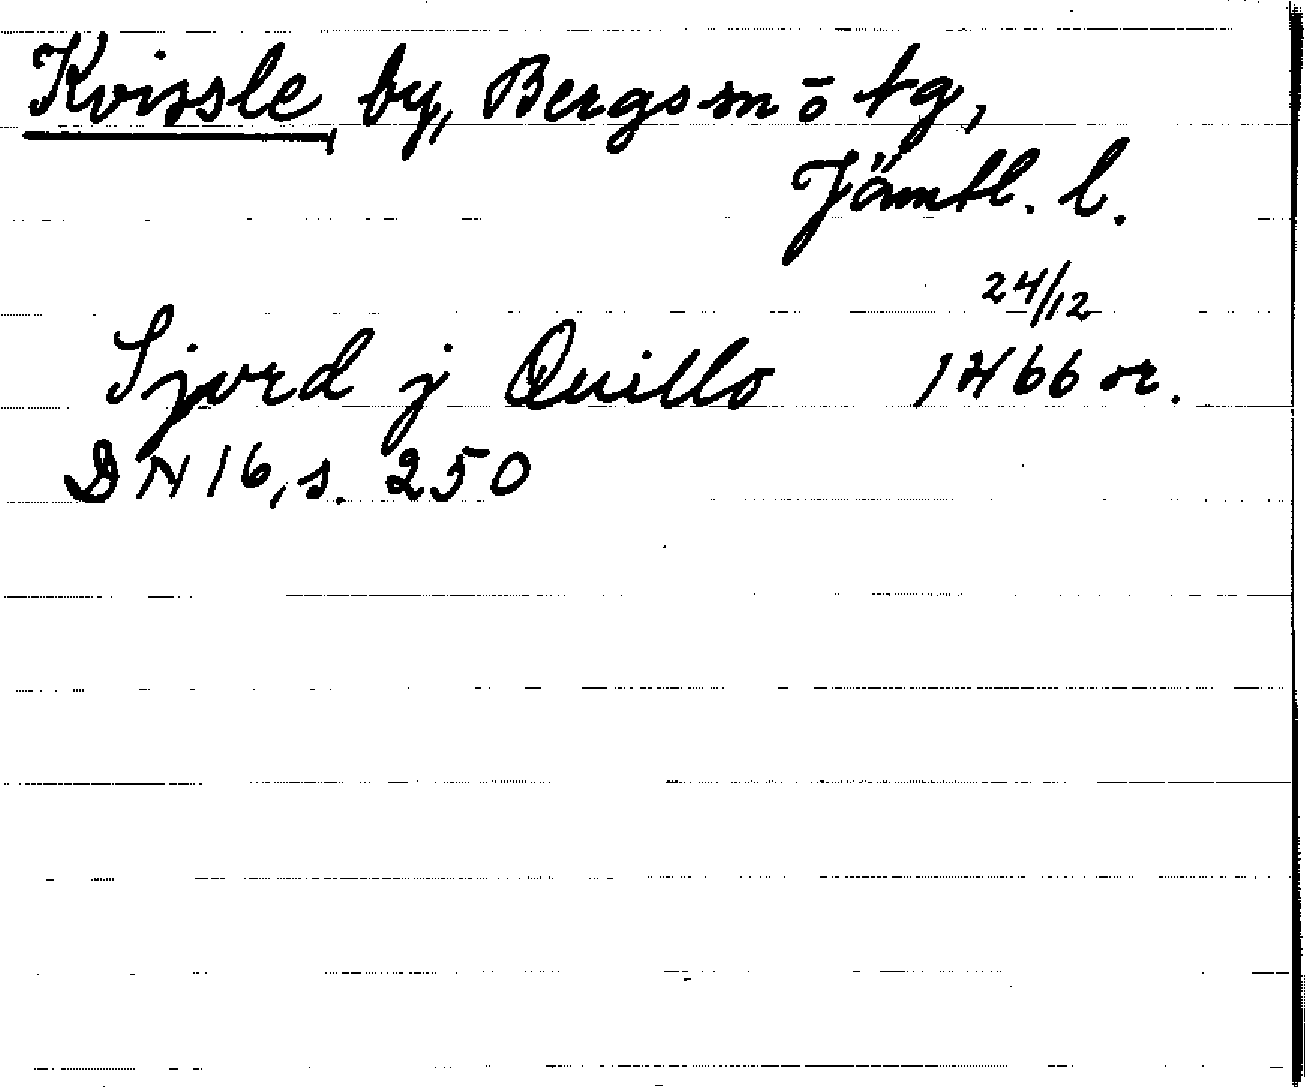 Kvissle by, Bergs sn ō tg,
Jämtl. l.
24/12
Sjvrd j Quillo 1466 or.
DN 16, s. 250